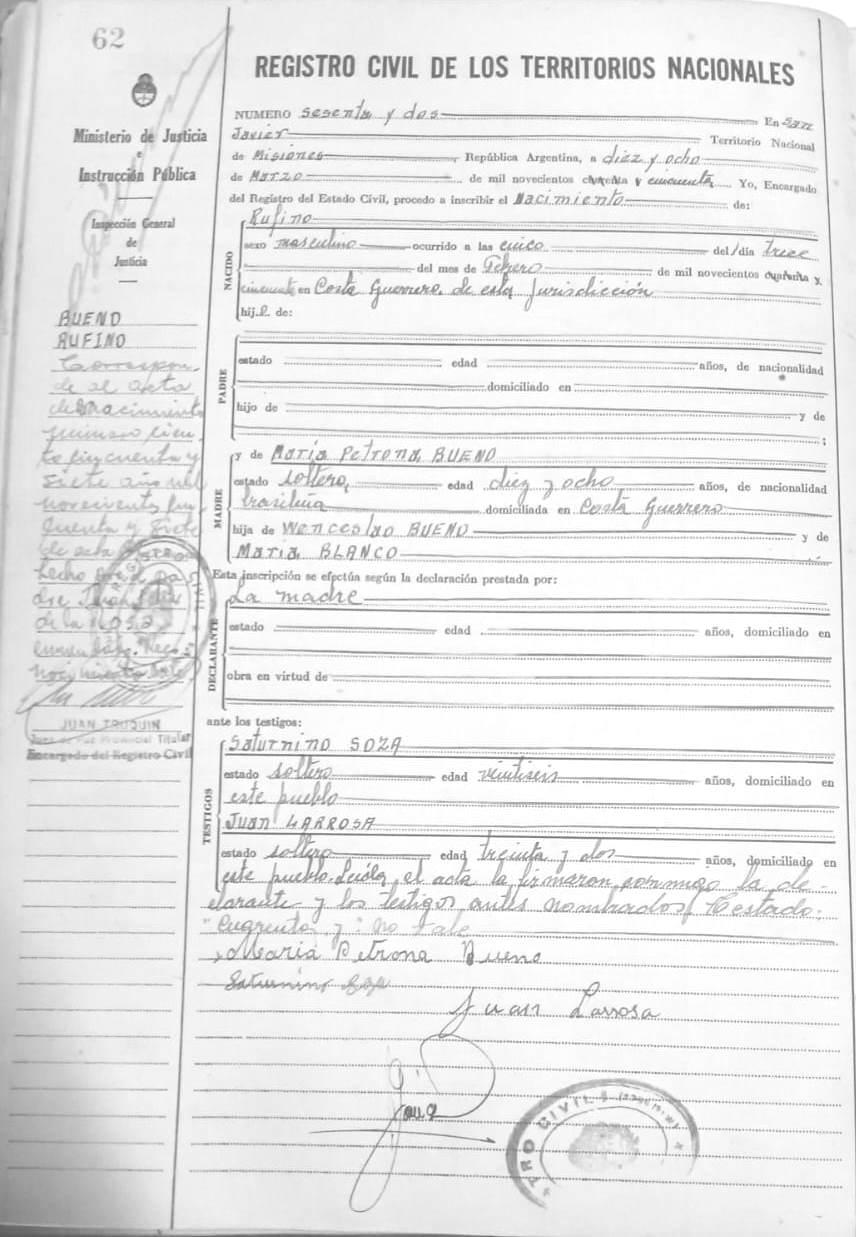 62
Ministerio de Justicia
e
Instrucción Pública
Inspección General
de
Justicia
BUENO
RUFINO
Correspon-
de al acta
de Nacimiento
número cien-
to cincuenta y
siete año mil
novecientos cin-
cuenta y siete
de esta
hecho por el pa-
dre Juan
de la ROSA
Reco-
nocimiento
JUAN TRUQUIN
Juez de Paz Provincial Titular
Encargado del Registro Civil
REGISTRO CIVIL DE LOS TERRITORIOS NACIONALES
NUMERO sesenta y dos En San
Javier Territorio Nacional
de Misiones, República Argentina, a diez y ocho
de Marzo de mil novecientos cuarenta y cincuenta Yo, Encargado
del Registro del Estado Civil, procedo a inscribir el Nacimiento de:
NACIDO
Rufino
sexo masculino ocurrido a las cinco del día trece
del mes de Febrero de mil novecientos cuarenta y
cincuenta en Costa Guerrero, de esta Jurisdicción
hij o de:
PADRE
estado edad años, de nacionalidad
domiciliado en
hijo de y de
;
MADRE
y de María Petrona BUENO
estado soltera, edad diez y ocho años, de nacionalidad
brasileña domiciliada en Costa Guerrero
hija de Wenceslao BUENO y de
María BLANCO
Esta inscripción se efectúa según la declaración prestada por:
DECLARANTE
La madre
estado edad años, domiciliado en
obra en virtud de
ante los testigos:
TESTIGOS
Saturnino SOZA
estado soltero edad veintiseis años, domiciliado en
este pueblo
Juan LARROSA
estado soltero edad treinta y dos años, domiciliado en
este pueblo. Leída el acta la firmaron conmigo la de-
clarante y los testigos antes nombrados. Testado:
"Cuarenta y": no vale
Maria Petrona Bueno
Saturnino Soza
Juan Larrosa
REGISTRO CIVIL